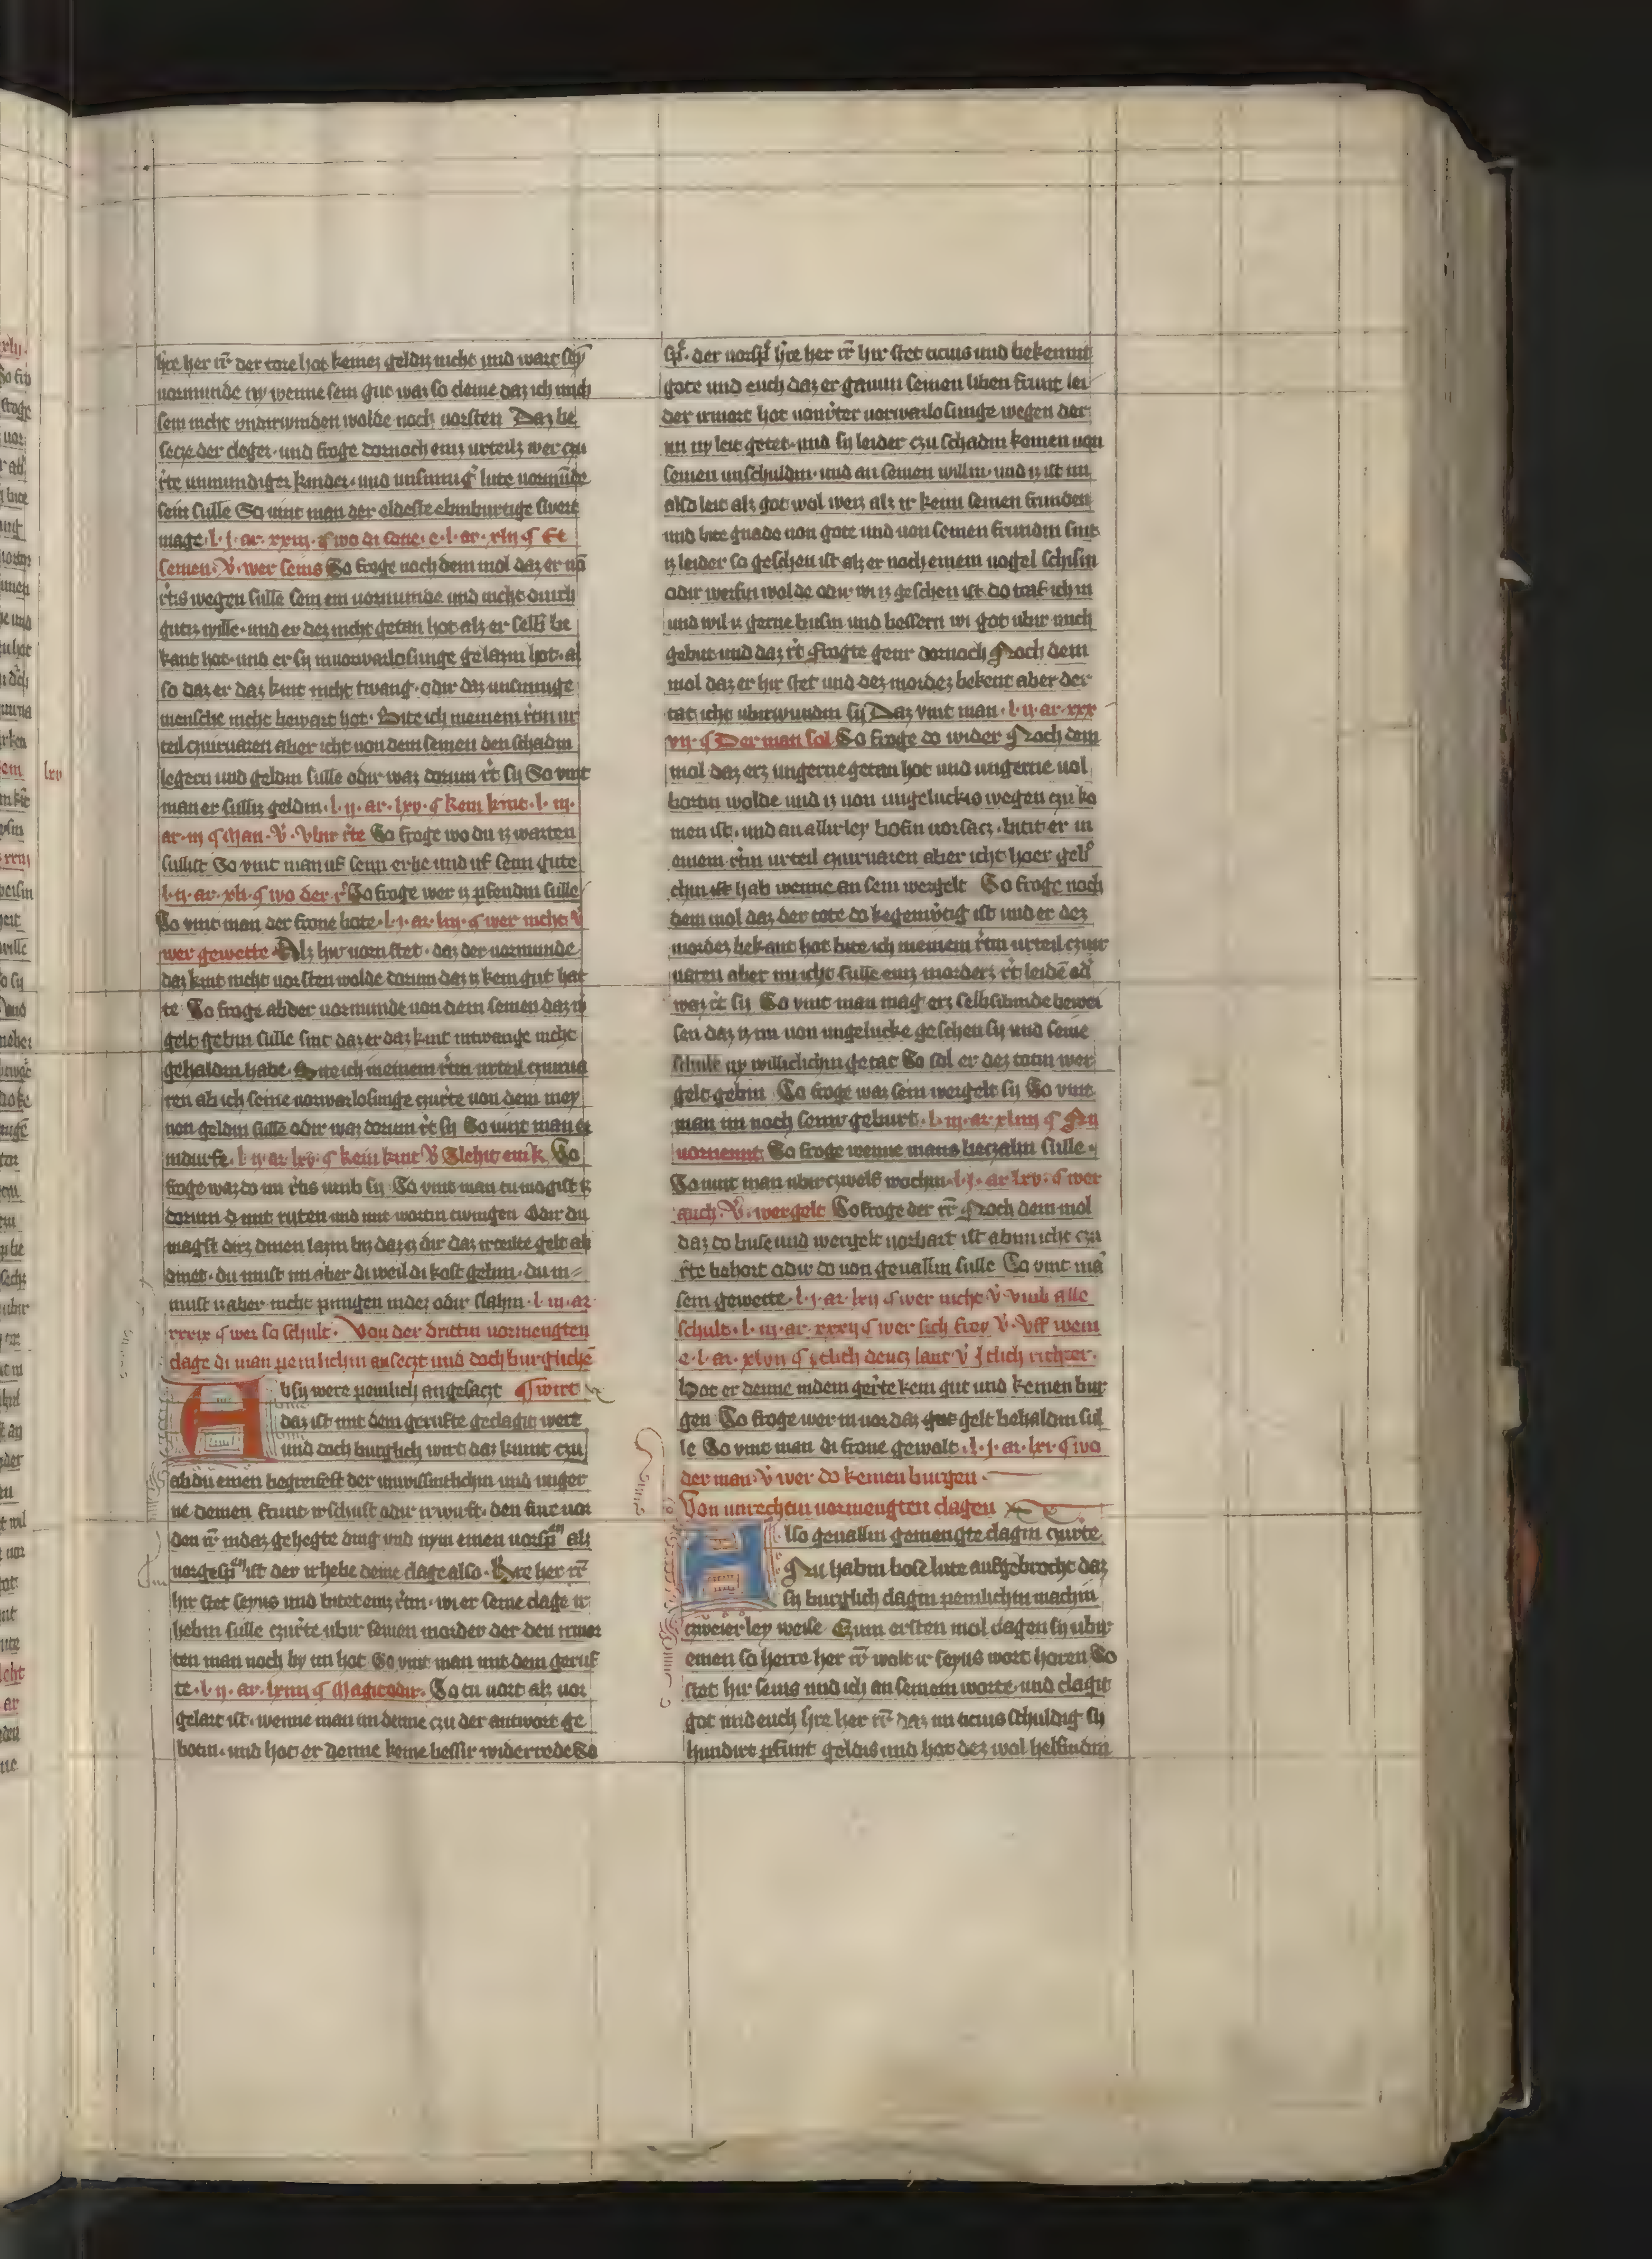 hre her rr̄ der tore hot keinez geldiz nicht und wart sey
uormunde ny wenne sein gut waz so cleine daz ich mich
sein nicht undirwinden wolde noch uorsten Daz be
secze der cleger · und froge dornoch einz urteilz wer czu
rẽte unmundiger kinder · und unsinnig̉ lute uormūde
sein sulle So vint man der eldeste ebinburtige swert
mage · l · j · ar · xxiij · ¶ wo di sone · e · l · ar · xlij ¶ Et
seinen · v̉ · wer seins So froge noch dem mol daz er uō
rẽtis wegen sulle sein ein uormunde und nicht durch
gutiz wille · und er dez nicht getan hot alz er selb be
kant hot · und er sy inuorwarlosunge gelazin hot · al
so daz er daz kint nicht twang · odir daz unsinnige
mensche nicht bewart hot · Bite ich meinem rẽtin ur
teil czuiruaren aber icht uon dem seinen den schadin
legern und geldin sulle odir waz dorum rẽt sy So vint
man er sulliz geldin · l · ij · ar · lxv · ¶ kein kint · l · iij ·
ar · iij ¶ Man · v̉ · Vbir rẽte So froge wo du iz warten
sullist So vint man uf sein erbe und uf sein gute
l · ij · ar · xli · ¶ wo der r̉ So froge wer iz pfendin sulle
So vint man der frone bote · l · j · ar · liij · ¶ wer nicht v̉
wer gewette Alz hir uorn stet · daz der uormunde
daz kint nicht uorsten wolde dorum daz iz kein gut hat
te So froge ab der uormunde uon dem seinen daz
gelt gebin sulle sint daz er daz kint intwange nicht
gehaldin habe · Bite ich meinem rẽtin urteil czuirua
ren ab ich seine uorwarlosunge czurẽte uon dem mey
nen geldin sulle odir waz dorum rẽt sy So vint man er
indurfe · l · ij · ar · lxv · ¶ kein kint v̉ Slehit ein k · So
froge waz do im rẽtis umb sy So vint man tu mogist iz
dorum mit ruten und mit wortin twingen Odir du
magst dirz dinen lazin biz daz iz dir daz irteilte gelt ab
dinet · du must im aber di weil di kost gebin · du in
must iz aber nicht pinigen indez odir slahin · l · iij · ar
xxxix ¶ wer so schult · Von der drittin uormengten
clage di man peinlichin anseczt und doch burgliche
Absy were peinlich angesaczt ¶ wirt
daz ist mit dem gerufte geclagit wert
und doch burglich wirt daz kumt czu
ab du einen begreifest der unwissintlichin und unger
ne deinen frunt irschust odir irwurft · den fure uor
den rr̄ indaz gehegte ding und nym einen uorsp̄en alz
uorgesp̄en ist der irhebe deine clage also · Hre her rr̄
hir stet seyus und bitet einz rẽtin · wi er seine clage ir
hebin sulle czurẽte ubir seinen morder der den irmor
ten man noch by im hot So vint man mit dem geruf
te · l · ij · ar · lxiiij ¶ Magit odir · So tu uort alz uor
gelart ist · wenne man im denne czu der antwort ge
botin · und hot er denne keine bessir widerrede So
sp̉ · der uorsp̉ hre her rr̄ hir stet ticius und bekennit
gote und euch daz er gaium seinen liben frunt lei
der irmort hot uon uorwarlosunge wegen der
im ny leit getet · und sy leider czu schadin komen uon
seinen unschuldin · und an seinen willin · und iz ist im
also leit alz got wol weiz alz ir kein seinen frunden
und bite gnade uon gote und uon seinen frundin sint
iz leider so geschen ist alz er noch einem uogel schisin
odir werfin wolde odir wi iz geschen ist do traf ich in
und wil iz gerne busin und bessern wi got ubir mich
gebut und daz rẽt Frogte gener dornoch Noch dem
mol daz er hir stet und dez mordez bekent aber der
tat icht ubirwundin sy Daz vint man · l · ij · ar · xxx
vij · ¶ Der man sol So froge do wider Noch dem
mol daz erz ungerne getan hot und ungerne uol
bortin wolde und iz uon ungelucks wegen czu ko
men ist · und an allirley bosin uorsacz · bitit er in
einem rẽtin urteil czuiruaren aber icht hoer
chin ist hab wenne an sein wergelt So froge noch
dem mol daz der tote do kegenwtig ist und er dez
mordez bekant hot bite ich meinem rẽtin urteil czuir
uaren aber nu icht sulle einz morderz rẽt leidē od̉
waz rẽt sy So vint man mag erz selbsibinde bewei
sen daz iz im uon ungelucke geschen sy und seine
schult ny willichchin getat So sol er dez totin wer
gelt gebin So froge waz sein wergelt sy So vint
man im noch seinir geburt · l · iij · ar · xliiij ¶ Nu
uornemt So froge wenne mans beczalin sulle ·
So vint man ubir czwelf wochin · l · j · ar · lxv · ¶ wer
auch · v̉ · wergelt So froge der rr̄ Noch dem mol
daz do buse und wergelt uorbart ist ab im icht czu
rẽte behort odir do uon geuallin sulle So vint mā
sein gewette · l · j · ar · lxij ¶ wer nicht v̉ · vmb alle
schult · l · iij · ar · xxxij ¶ wer sich frey v̉ · Vff wem
e · l · ar · xlvij ¶ iclich deucz lant v̉ Iclich richter ·
Hot er denne indem gerẽte kein gut und keinen bur
gen So froge wer in uor daz gut gelt behaldin sul
le So vint man di frone gewalt · l · j · ar · lxi · ¶ wo
der man · v̉ wer do keinen burgen ·
Von unrechtin uormengten clagen
Also geuallin gemengte clagin czurte
Nu habin bose lute aufgebroche daz
sy burglich clagin peinlichin machin
czweier ley weise Czum ersten mol clagen sy ubir
einen so herre her rr̄ wolt ir seyus wort horen So
stet hir seius und ich an seinem worte · und clagit
got und euch hre her rr̄ daz im ticius schuldig sy
hundirt pfunt geldis und hot dez wol helfindin